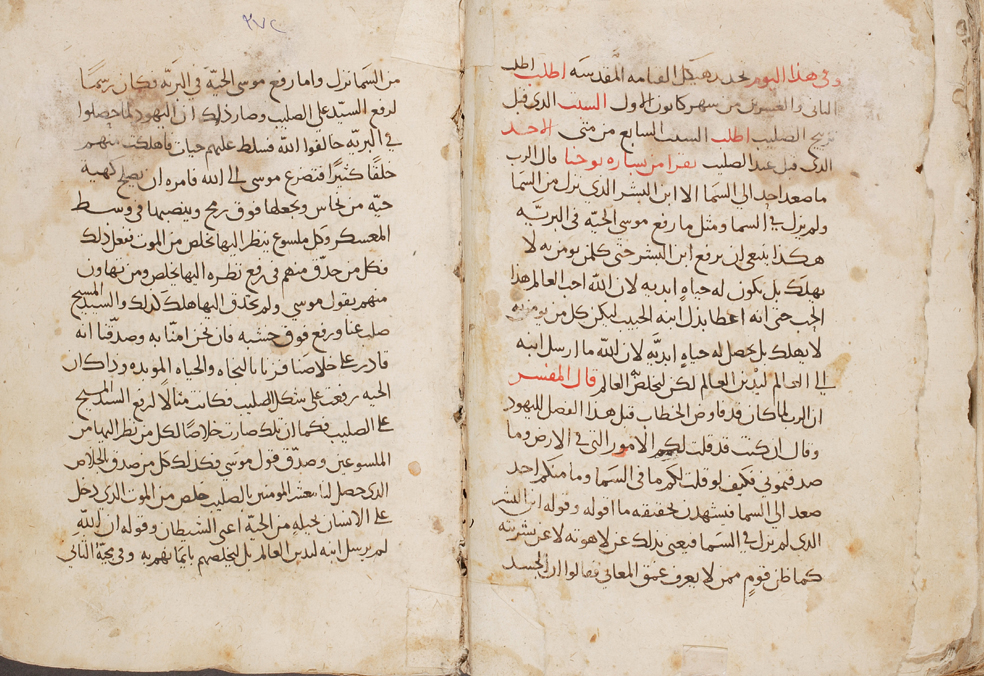 وفي هذا اليوم تجديد هيكل القيامه المقدسه اطلب احد
الثاني والعشرين من شهر كانون الاول السبت الذي قبل
الصليب اطلب السبت السابع من متى الاحد
الذي قبل عيد الصليب يقرا من بشاره يوحنا قال الرب
ما صعد احد الى السما الا ابن البشر الذي نزل من السما
ولم يزل في السما ومثل ما رفع موسى الحيه في البريّه
هكذا ينبغي ان يرفع ابن البشر حتى كل من يومن به لا
يهلك بل يكون له حياه ابديه لان الله احب العالم هذا
الحب حتى انه اعطا بذل ابنه الحبيب ليكن كل من يومن به
لا يهلك بل تحصل له حياه ابديّه لان الله ما ارسل ابنه
الى العالم ليدين العالم لكن ليخلص العالم قال المفسر
ان الرب لما كان قد فاوض الخطاب قبل هذا الفصل لليهود
وقال ان كنت قد قلت لكم الامور التي في الارض وما
صدقتموني فكيف لو قلت لكم ما في السما وما منكم احد
صعد الى السما فيستهدن بحقيقه ما اقوله وقوله ابن البشر
الذي لم يزل في السما فيعني بذلك عن لاهوته لا عن بشريته
كما ظن قومٍ ممن لا يعرف عمق المعاني فقالوا ان الجسد
٣٧٢
من السما نزل واما رفع موسى الحيّه في البريّه فكان رسمًا
لرفع السيّد على الصليب وصار ذلك ان اليهود لما حصلوا
في البريّه خالفوا الله فسلط عليهم حيات فاهلكت منهم
خلقًا كثيرًا فتضرع موسى الى الله فامره ان يصلح كهية
حيّه من نحاس ويجعلها فوق رمح وينصبها في وسط
المعسكر وكل ملسوع ينظر اليها يخلص من الموت ففعل ذلك
فكل من حدّق منهم في رفع نظره اليها يخلص ومن تهاون
منهم بقول موسى ولم يحدق اليها هلك كذلك والسيّد المسيح
صلب عنا ورفع فوق خشبه فان نحن امنّا به وصدّقنا انه
قادر على خلاصنا فزنا بالنجاه والحياه الموبده وذاك ان
الحيه رفعت على شكل الصليب فكانت مثالًا لرفع السيّد المسيح
على الصليب فكما ان تلك صارت خلاصًا لكل من نظر اليها من
الملسوعين وصدّق قول موسى فكذلك كل من صدق بالخلاص
الذي حصل لنا معشر المومنين بالصليب خلص من الموت الذي دخل
على الانسان بحيله من الحيّه اعني الشيطان وقوله ان الله
لم يرسل ابنه ليدين العالم بل ليخلصهم باتما بهم به وفي مجيّه الثاني